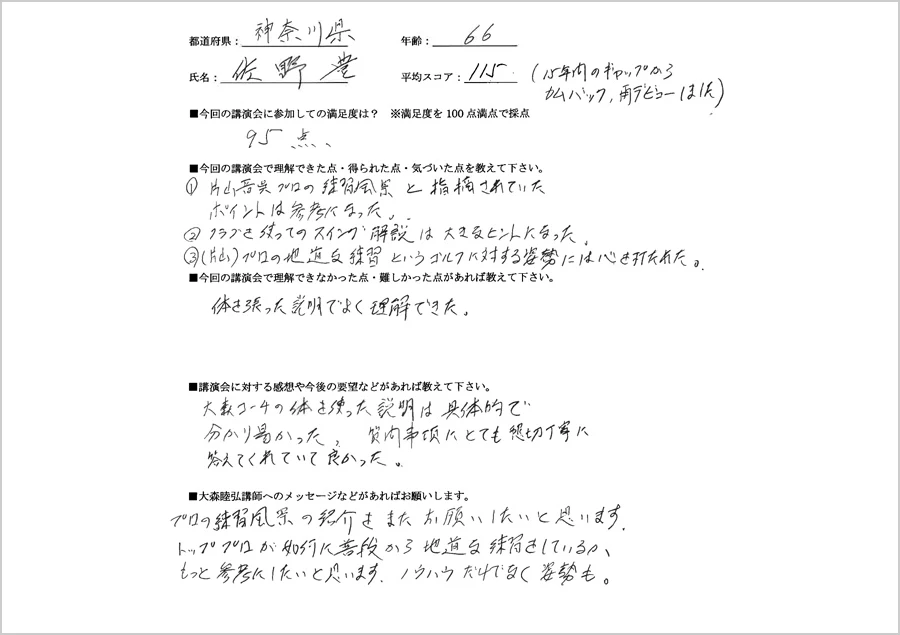 都道府県： 神奈川県 年齢： 66
氏名： 佐野 豊 平均スコア： 115. (15年内のギャップから
カムバック，再デビューはした)
■今回の講演会に参加しての満足度は？ ※満足度を100点満点で採点
95点、
■今回の講演会で理解できた点・得られた点・気づいた点を教えて下さい。
① 片山晋呉プロの練習風景と指摘されていた
ポイントは参考になった．
② クラブを使ってのスイング解説は大きなヒントになった．
③(片山)プロの地道な練習というゴルフに対する姿勢には心を打たれた。
■今回の講演会で理解できなかった点・難しかった点があれば教えて下さい。
体を張った説明でよく理解できた。
■講演会に対する感想や今後の要望などがあれば教えて下さい。
大森コーチの体を使った説明は具体的で
分かり易かった， 質問事項にとても懇切丁寧に
答えてくれていて良かった。
■大森睦弘講師へのメッセージなどがあればお願いします。
プロの練習風景の紹介をまたお願いしたいと思います．
トッププロが如何に普段から地道な練習をしているか、
もっと参考にしたいと思います．ノウハウだけでなく姿勢も。